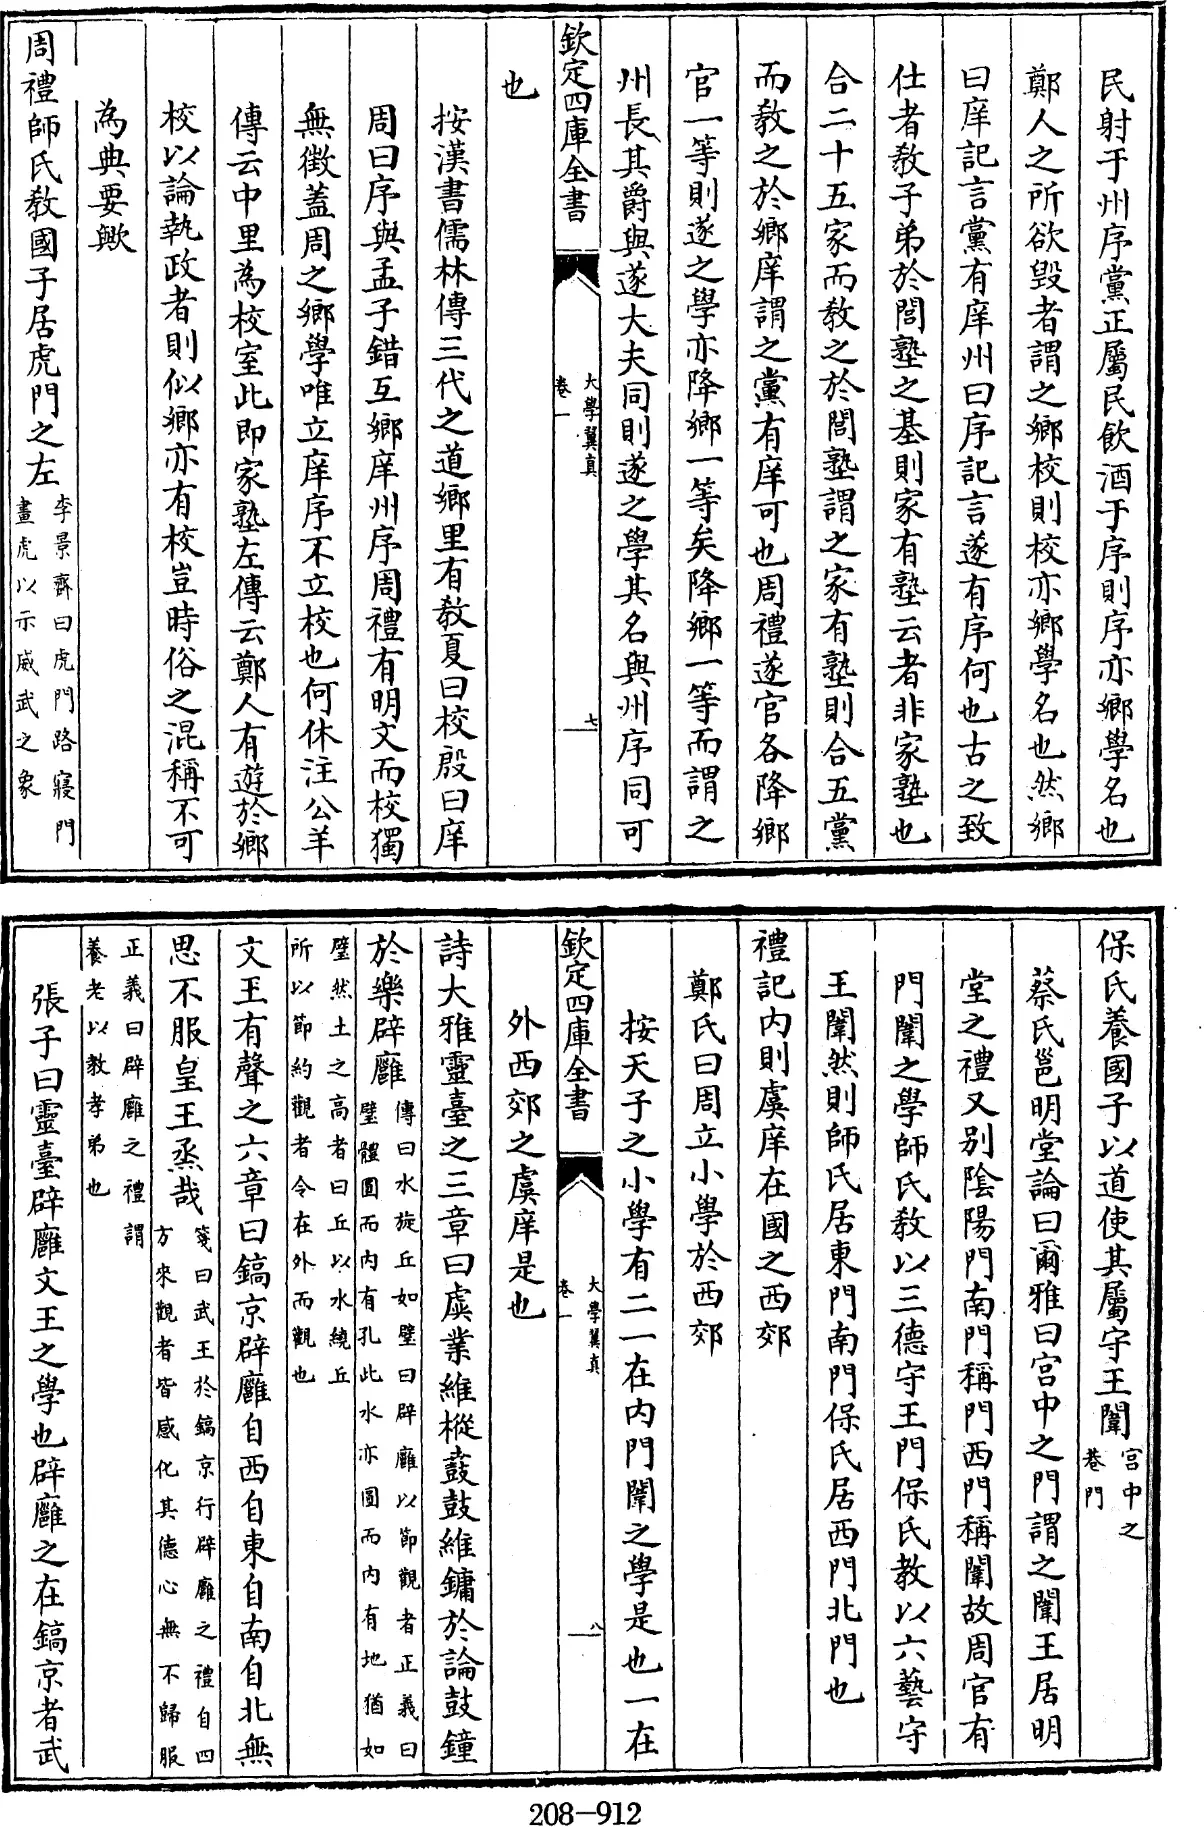 民射于州序黨正屬民飲酒于序則序亦鄉學名也
鄭人之所欲毀者謂之鄉校則校亦鄉學名也然鄉
曰庠記言黨有庠州曰序記言遂有序何也古之致
仕者教子弟於閭塾之基則家有塾云者非家塾也
合二十五家而教之於閭塾謂之家有塾則合五黨
而教之於鄉庠謂之黨有庠可也周禮遂官各降鄉
官一等則遂之學亦降鄉一等矣降鄉一等而謂之
州長其爵與遂大夫同則遂之學其名與州序同可
欽定四庫全書
大學翼真
卷一
七
也
按漢書儒林傳三代之道鄉里有教夏曰校殷曰庠
周曰序與孟子錯互鄉庠州序周禮有明文而校獨
無徵蓋周之鄉學唯立庠序不立校也何休注公羊
傳云中里為校室此即家塾左傳云鄭人有遊於鄉
校以論執政者則似鄉亦有校豈時俗之混稱不可
為典要歟
周禮師氏教國子居虎門之左
李景齊曰虎門路寢門
畫虎以示威武之象
保氏養國子以道使其屬守王闈
宫中之
巷門
蔡氏邕明堂論曰爾雅曰宫中之門謂之闈王居明
堂之禮又别陰陽門南門稱門西門稱闈故周官有
門闈之學師氏教以三德守王門保氏教以六藝守
王闈然則師氏居東門南門保氏居西門北門也
禮記内則虞庠在國之西郊
鄭氏曰周立小學於西郊
按天子之小學有二一在内門闈之學是也一在
欽定四庫全書
大學翼真
卷一
八
外西郊之虞庠是也
詩大雅靈臺之三章曰虡業維樅鼖鼓維鏞於論鼓鐘
於樂辟廱
傳曰水旋丘如璧曰辟廱以節觀者正義曰
璧體圓而内有孔此水亦圓而内有地猶如
璧然土之高者曰丘以水繞丘
所以節約觀者令在外而觀也
文王有聲之六章曰鎬京辟廱自西自東自南自北無
思不服皇王烝哉
箋曰武王於鎬京行辟廱之禮自四
方來觀者皆感化其德心無不歸服
正義曰辟廱之禮謂
養老以教孝弟也
張子曰靈臺辟廱文王之學也辟廱之在鎬京者武
208-912